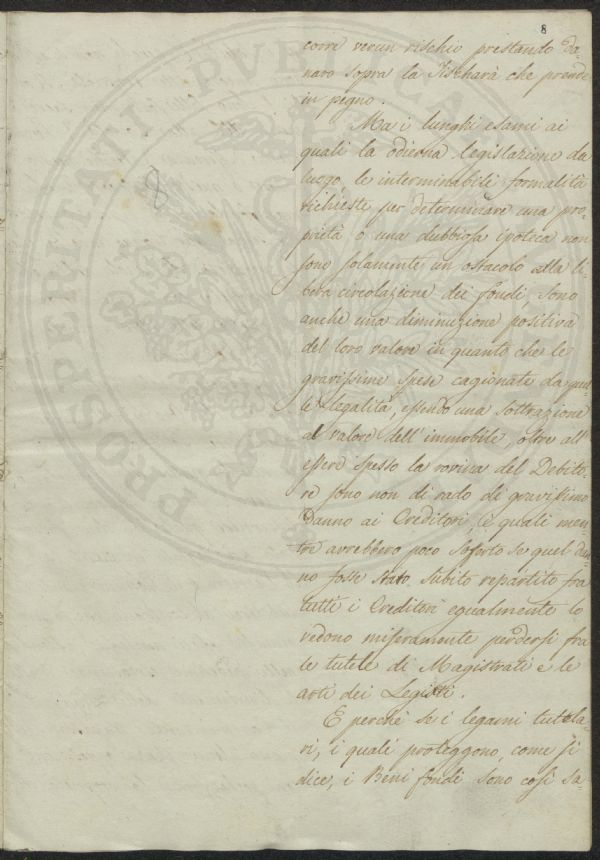 8
corre verun rischio prestando da=
naro sopra la che prende
in pegno.
Ma i lunghi esami ai
quali la odierna legislazione da
luogo, le interminabili formalità
richieste per determinare una pro=
prietà o una dubbiosa ipoteca non
sono solamente un ostacolo alla li=
bera circolazione dei fondi, sono
anche una diminuzione positiva
del loro valore in quanto che le
gravissime spese cagionate da quel=
le legalità, essendo una sottrazione
al valore dell'immobile, oltre all'
essere spesso la rovina del Debito=
re sono non di rado di gravissimo
Danno ai Creditori, i quali men=
tre avrebbero poco soferto se quel dan=
no fosse stato subito repartito fra
tutti i Creditori egualmente lo
vedono miseramente perdersi fra
le tutele di Magistrati e le
arti dei Legisti.
E perchè se i legami tutela=
ri, i quali proteggono, come si
dice, i Beni fondi sono così sa=
8
PROSPERITATI PVBLICAE